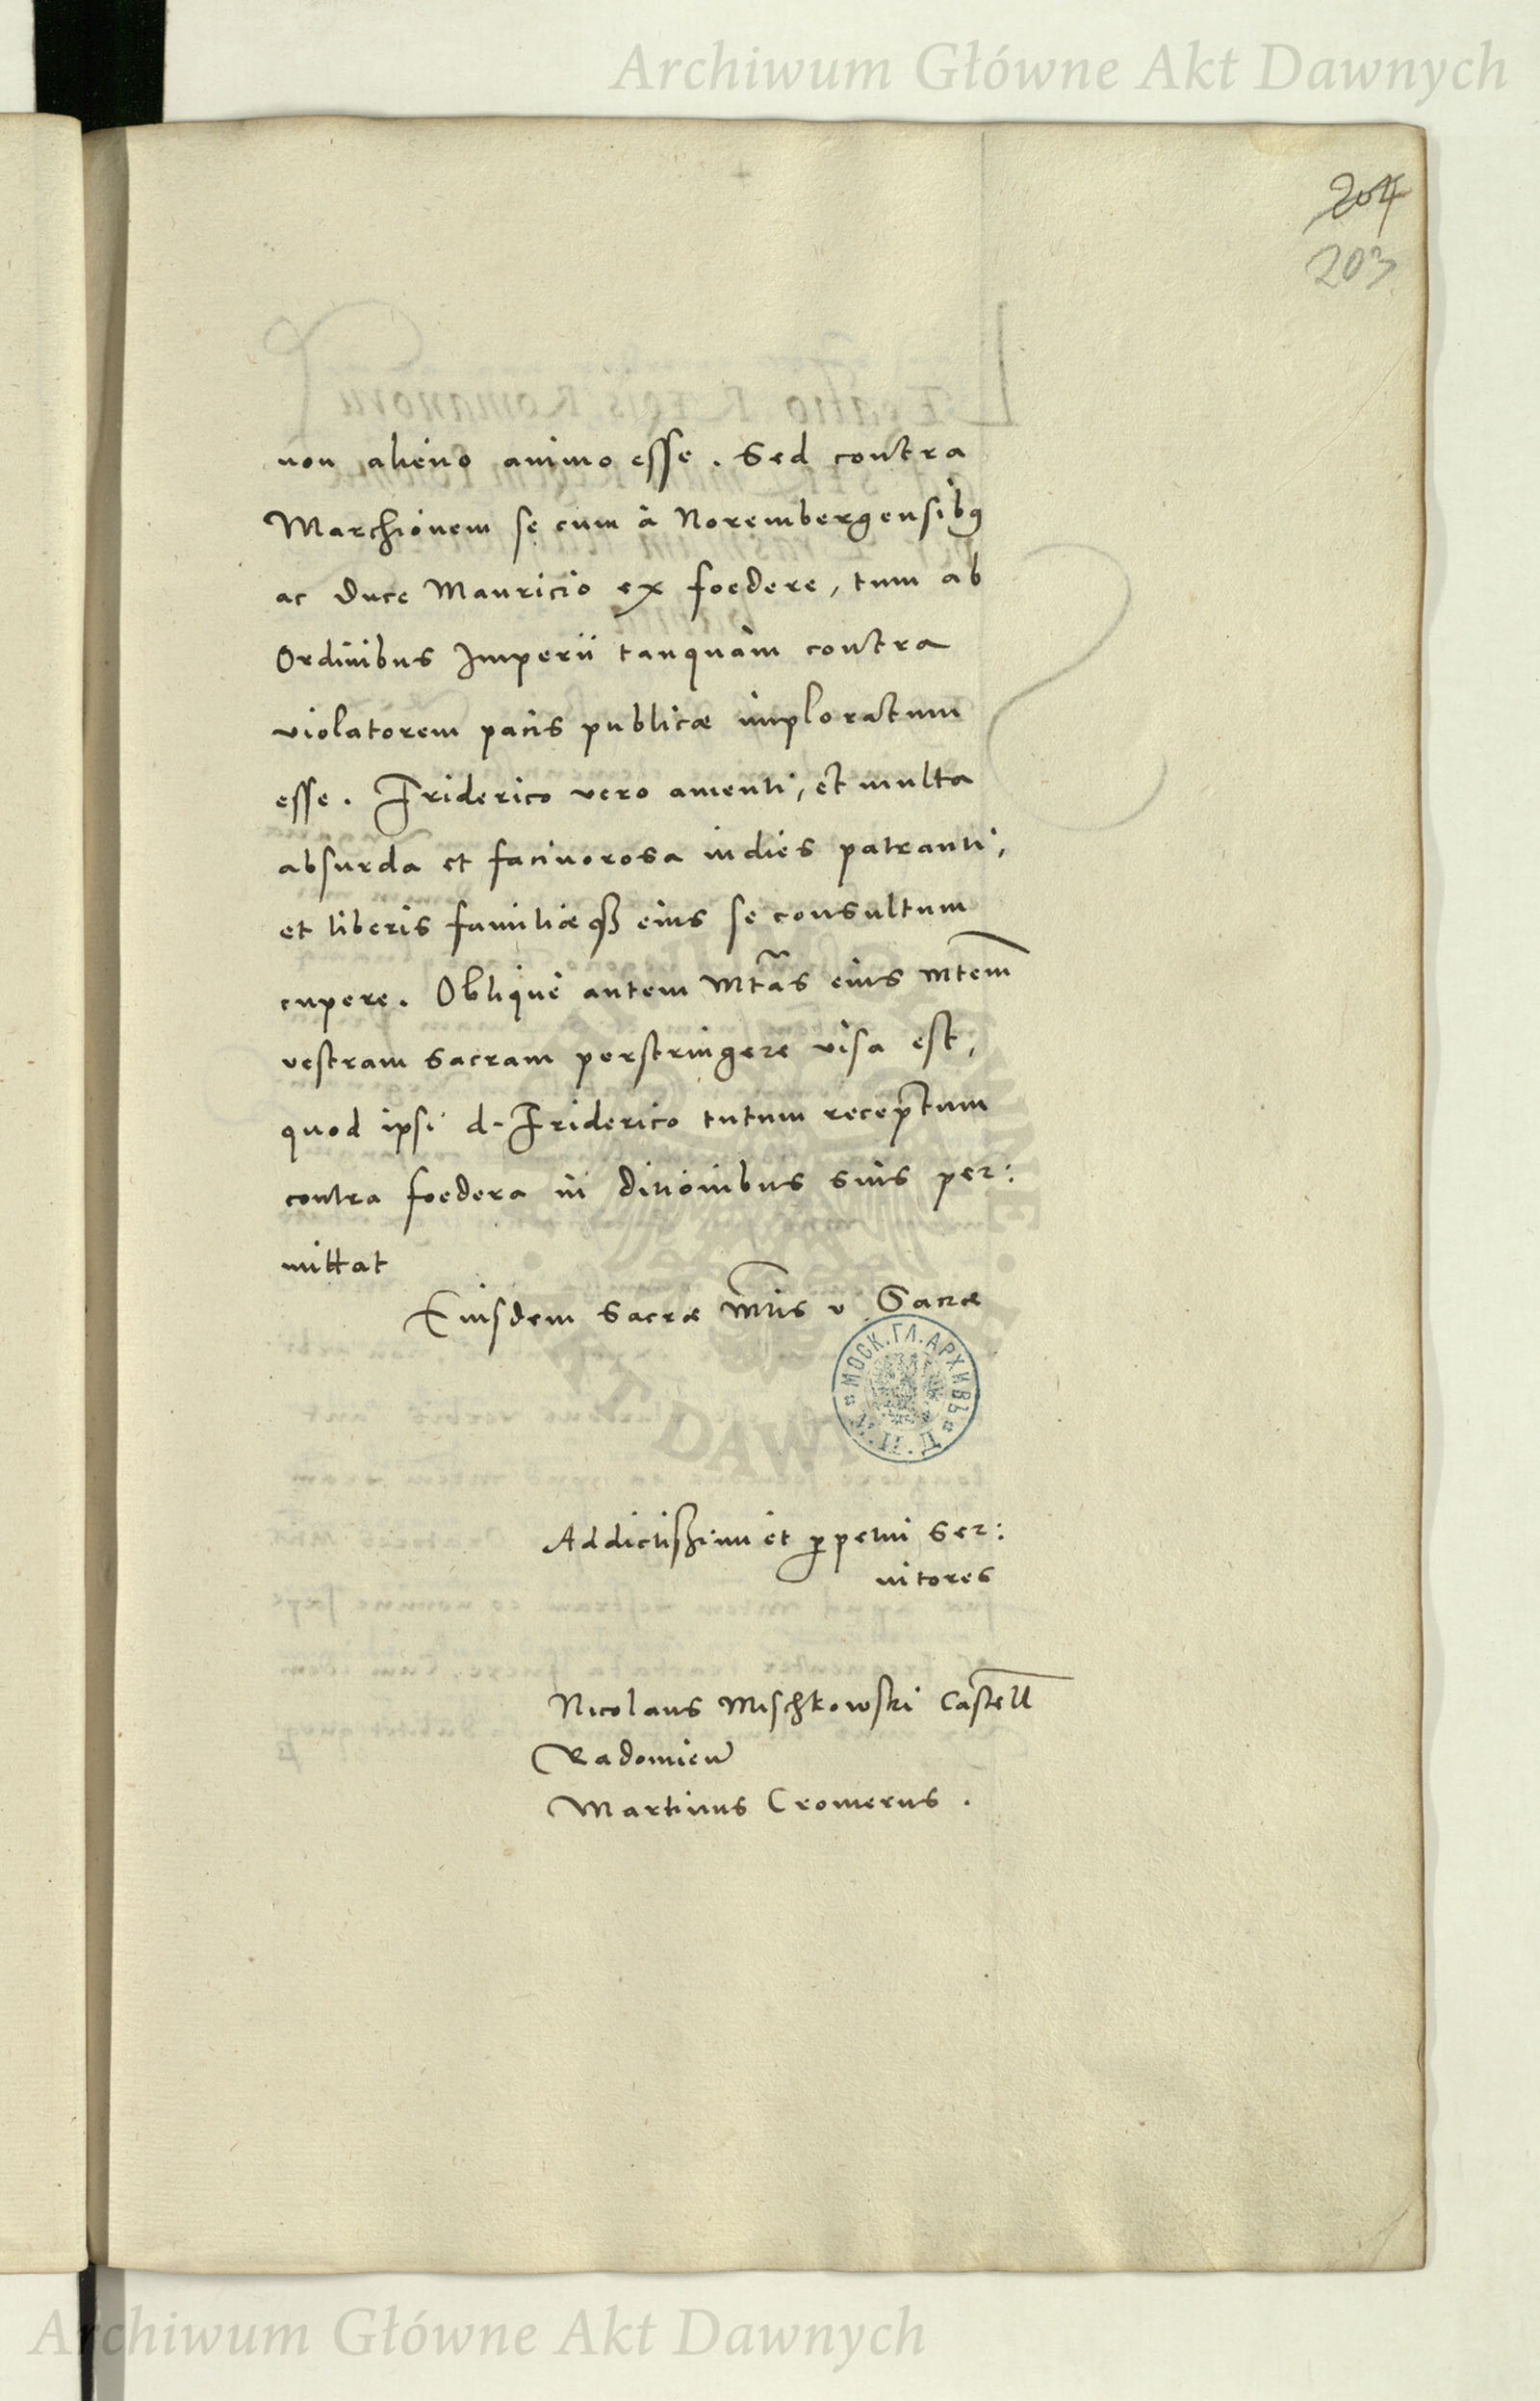 Archiwum Główne Akt Dawnych
204
203
non alieno animo esse. Sed contra
Marchionem se cum à Norembergensibꝯ
ac Duce Mauricio ex foedere, tum ab
Ordinibus Imperii tanquàm contra
violatorem pacis publicæ imploratum
esse. Friderico vero amenti, et multa
absurda et facinorosa indies patranti,
et liberis familiæqꝫ eius se consultum
cupere. Obliquè autem Mtas eius Mtem
vestram sacram perstringere visa est,
quod ipsi d. Friderico tutum receptum
contra foedera in ditionibus suis per:
mittat
Eiusdem sacræ Mtis v Sacræ
МОСК.ГЛ.АРХИВЪ
Addictißimi et ꝑpetui ser:
uitores
Nicolaus Mischkowski Castell
Radomien
Martinus Cromerus.
Archiwum Główne Akt Dawnych